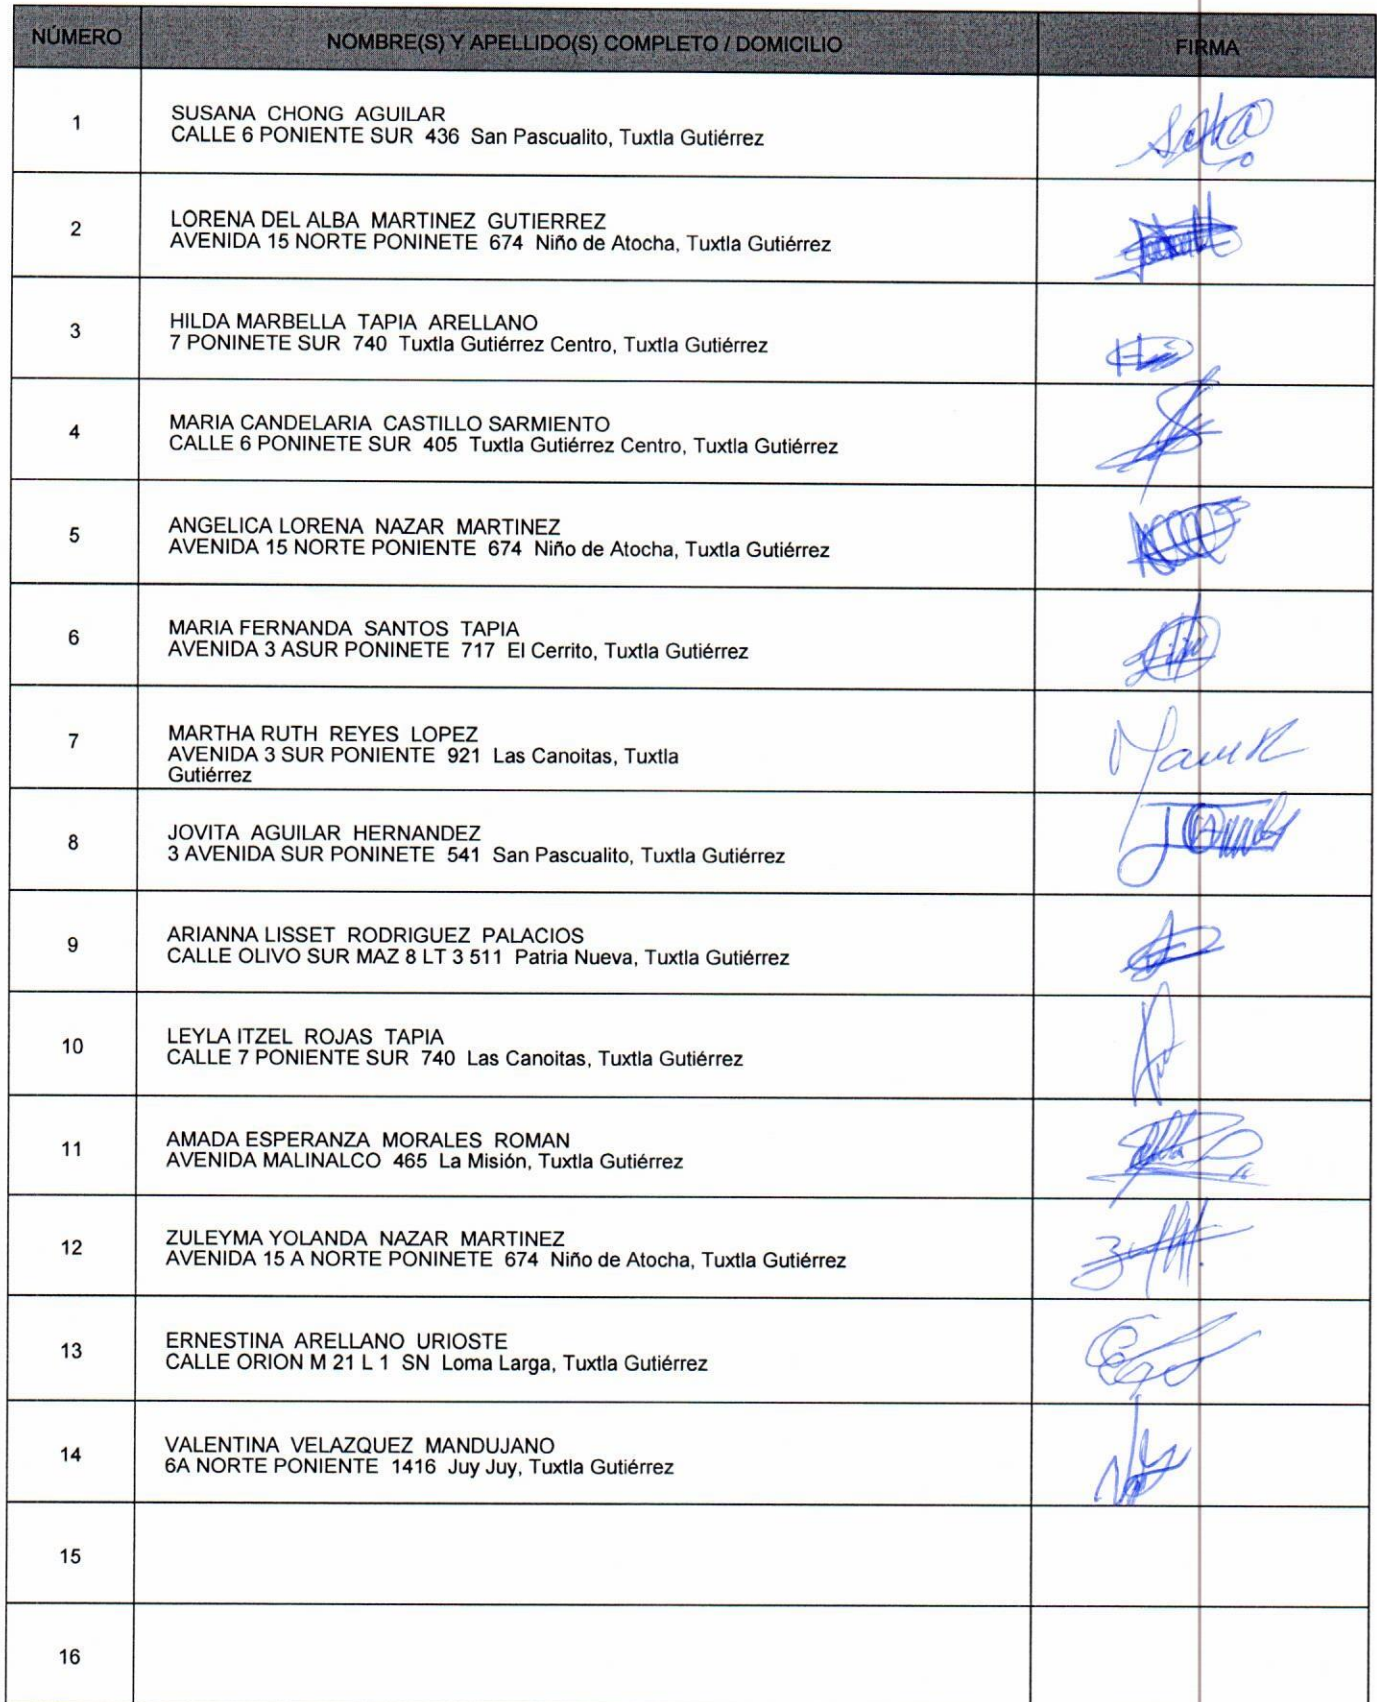 NÚMERO NOMBRE(S) Y APELLIDO(S) COMPLETO / DOMICILIO FIRMA
1 SUSANA CHONG AGUILAR
CALLE 6 PONIENTE SUR 436 San Pascualito, Tuxtla Gutiérrez
2 LORENA DEL ALBA MARTINEZ GUTIERREZ
AVENIDA 15 NORTE PONINETE 674 Niño de Atocha, Tuxtla Gutiérrez
3 HILDA MARBELLA TAPIA ARELLANO
7 PONINETE SUR 740 Tuxtla Gutiérrez Centro, Tuxtla Gutiérrez
4 MARIA CANDELARIA CASTILLO SARMIENTO
CALLE 6 PONINETE SUR 405 Tuxtla Gutiérrez Centro, Tuxtla Gutiérrez
5 ANGELICA LORENA NAZAR MARTINEZ
AVENIDA 15 NORTE PONIENTE 674 Niño de Atocha, Tuxtla Gutiérrez
6 MARIA FERNANDA SANTOS TAPIA
AVENIDA 3 ASUR PONINETE 717 El Cerrito, Tuxtla Gutiérrez
7 MARTHA RUTH REYES LOPEZ
AVENIDA 3 SUR PONIENTE 921 Las Canoitas, Tuxtla
Gutiérrez
8 JOVITA AGUILAR HERNANDEZ
3 AVENIDA SUR PONINETE 541 San Pascualito, Tuxtla Gutiérrez
9 ARIANNA LISSET RODRIGUEZ PALACIOS
CALLE OLIVO SUR MAZ 8 LT 3 511 Patria Nueva, Tuxtla Gutiérrez
10 LEYLA ITZEL ROJAS TAPIA
CALLE 7 PONIENTE SUR 740 Las Canoitas, Tuxtla Gutiérrez
11 AMADA ESPERANZA MORALES ROMAN
AVENIDA MALINALCO 465 La Misión, Tuxtla Gutiérrez
12 ZULEYMA YOLANDA NAZAR MARTINEZ
AVENIDA 15 A NORTE PONINETE 674 Niño de Atocha, Tuxtla Gutiérrez
13 ERNESTINA ARELLANO URIOSTE
CALLE ORION M 21 L 1 SN Loma Larga, Tuxtla Gutiérrez
14 VALENTINA VELAZQUEZ MANDUJANO
6A NORTE PONIENTE 1416 Juy Juy, Tuxtla Gutiérrez
15
16